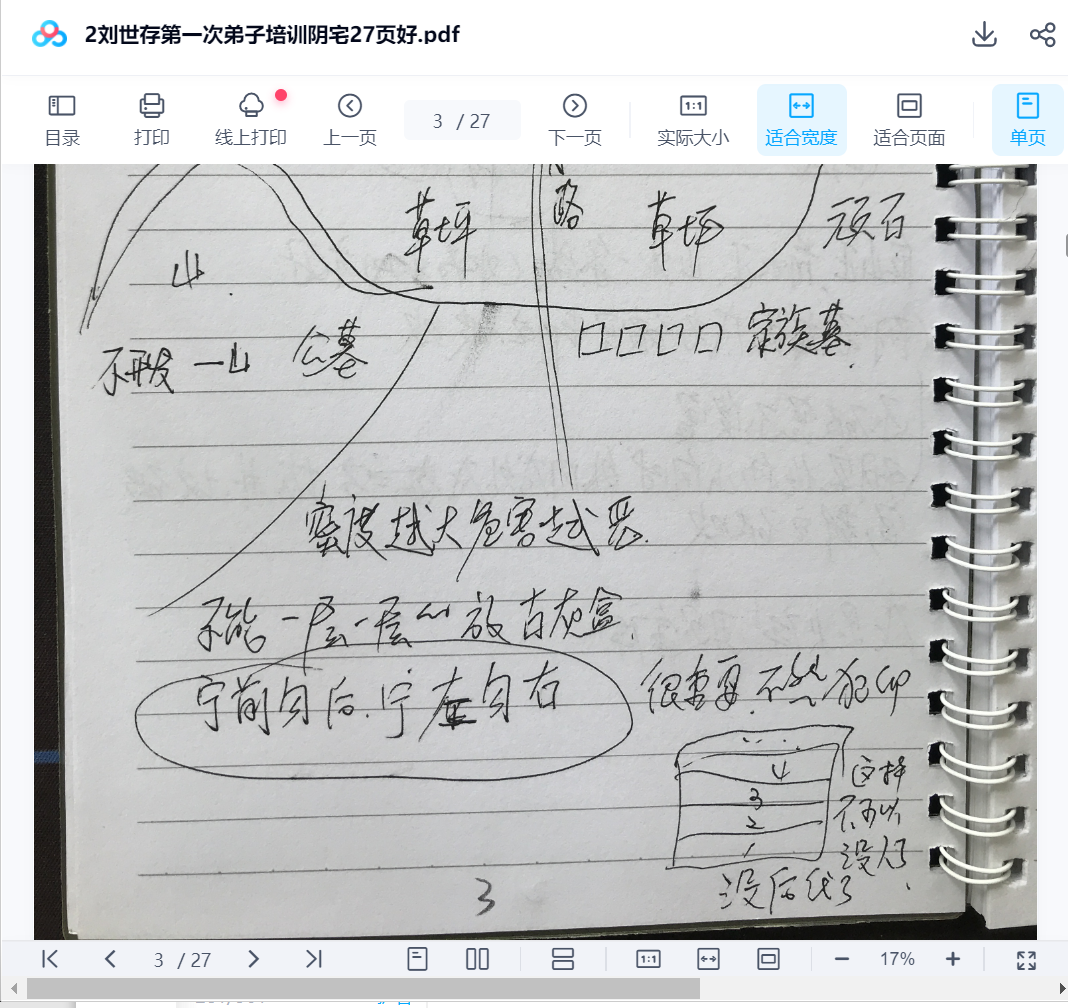 2刘世存第一次弟子培训阴宅27页好.pdf
目录 打印 线上打印 上一页 3 / 27 下一页 1:1 实际大小 适合宽度 适合页面 单页
草坪 路 草坪 顽石
山
不开发 一山 公墓 家族墓
密度越大危害越恶
不能一层一层的放古灰盒
宁前勿后.宁左勿右
很重要 不然犯
4
3
2
1
这样
不可以
没人了
没后代了
3
3 / 27 1:1 17%